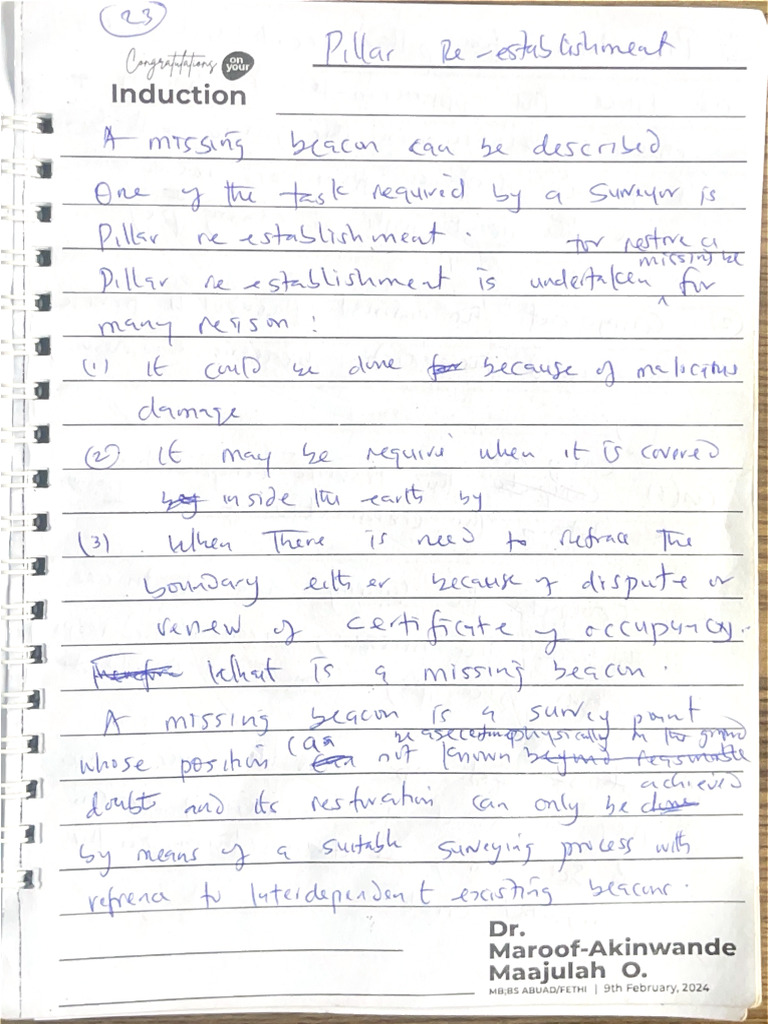 23
Congratulations on your
Induction
Pillar Re-establishment
A missing beacon can be described
One of the task required by a surveyor is
Pillar re establishment.
for restore a
missing be
Pillar re establishment is undertaken ^ for
many reason:
(1) It could be done for because of malicious
damage
(2) It may be require when it is covered
inside the earth by
(3) . When There is need to retrace the
boundary either because of dispute or
renew of certificate of occupancy.
Therefore What is a missing beacon.
A missing beacon is a survey point
can be ascertain physically in the ground
whose position can not known beyond reasonable
achieved
doubt and its restoration can only be done
by means of a suitable surveying process with
refrence to Interdependent excisting beacons.
Dr.
Maroof-Akinwande
Maajulah O.
MB;BS ABUAD/FETHI | 9th February, 2024